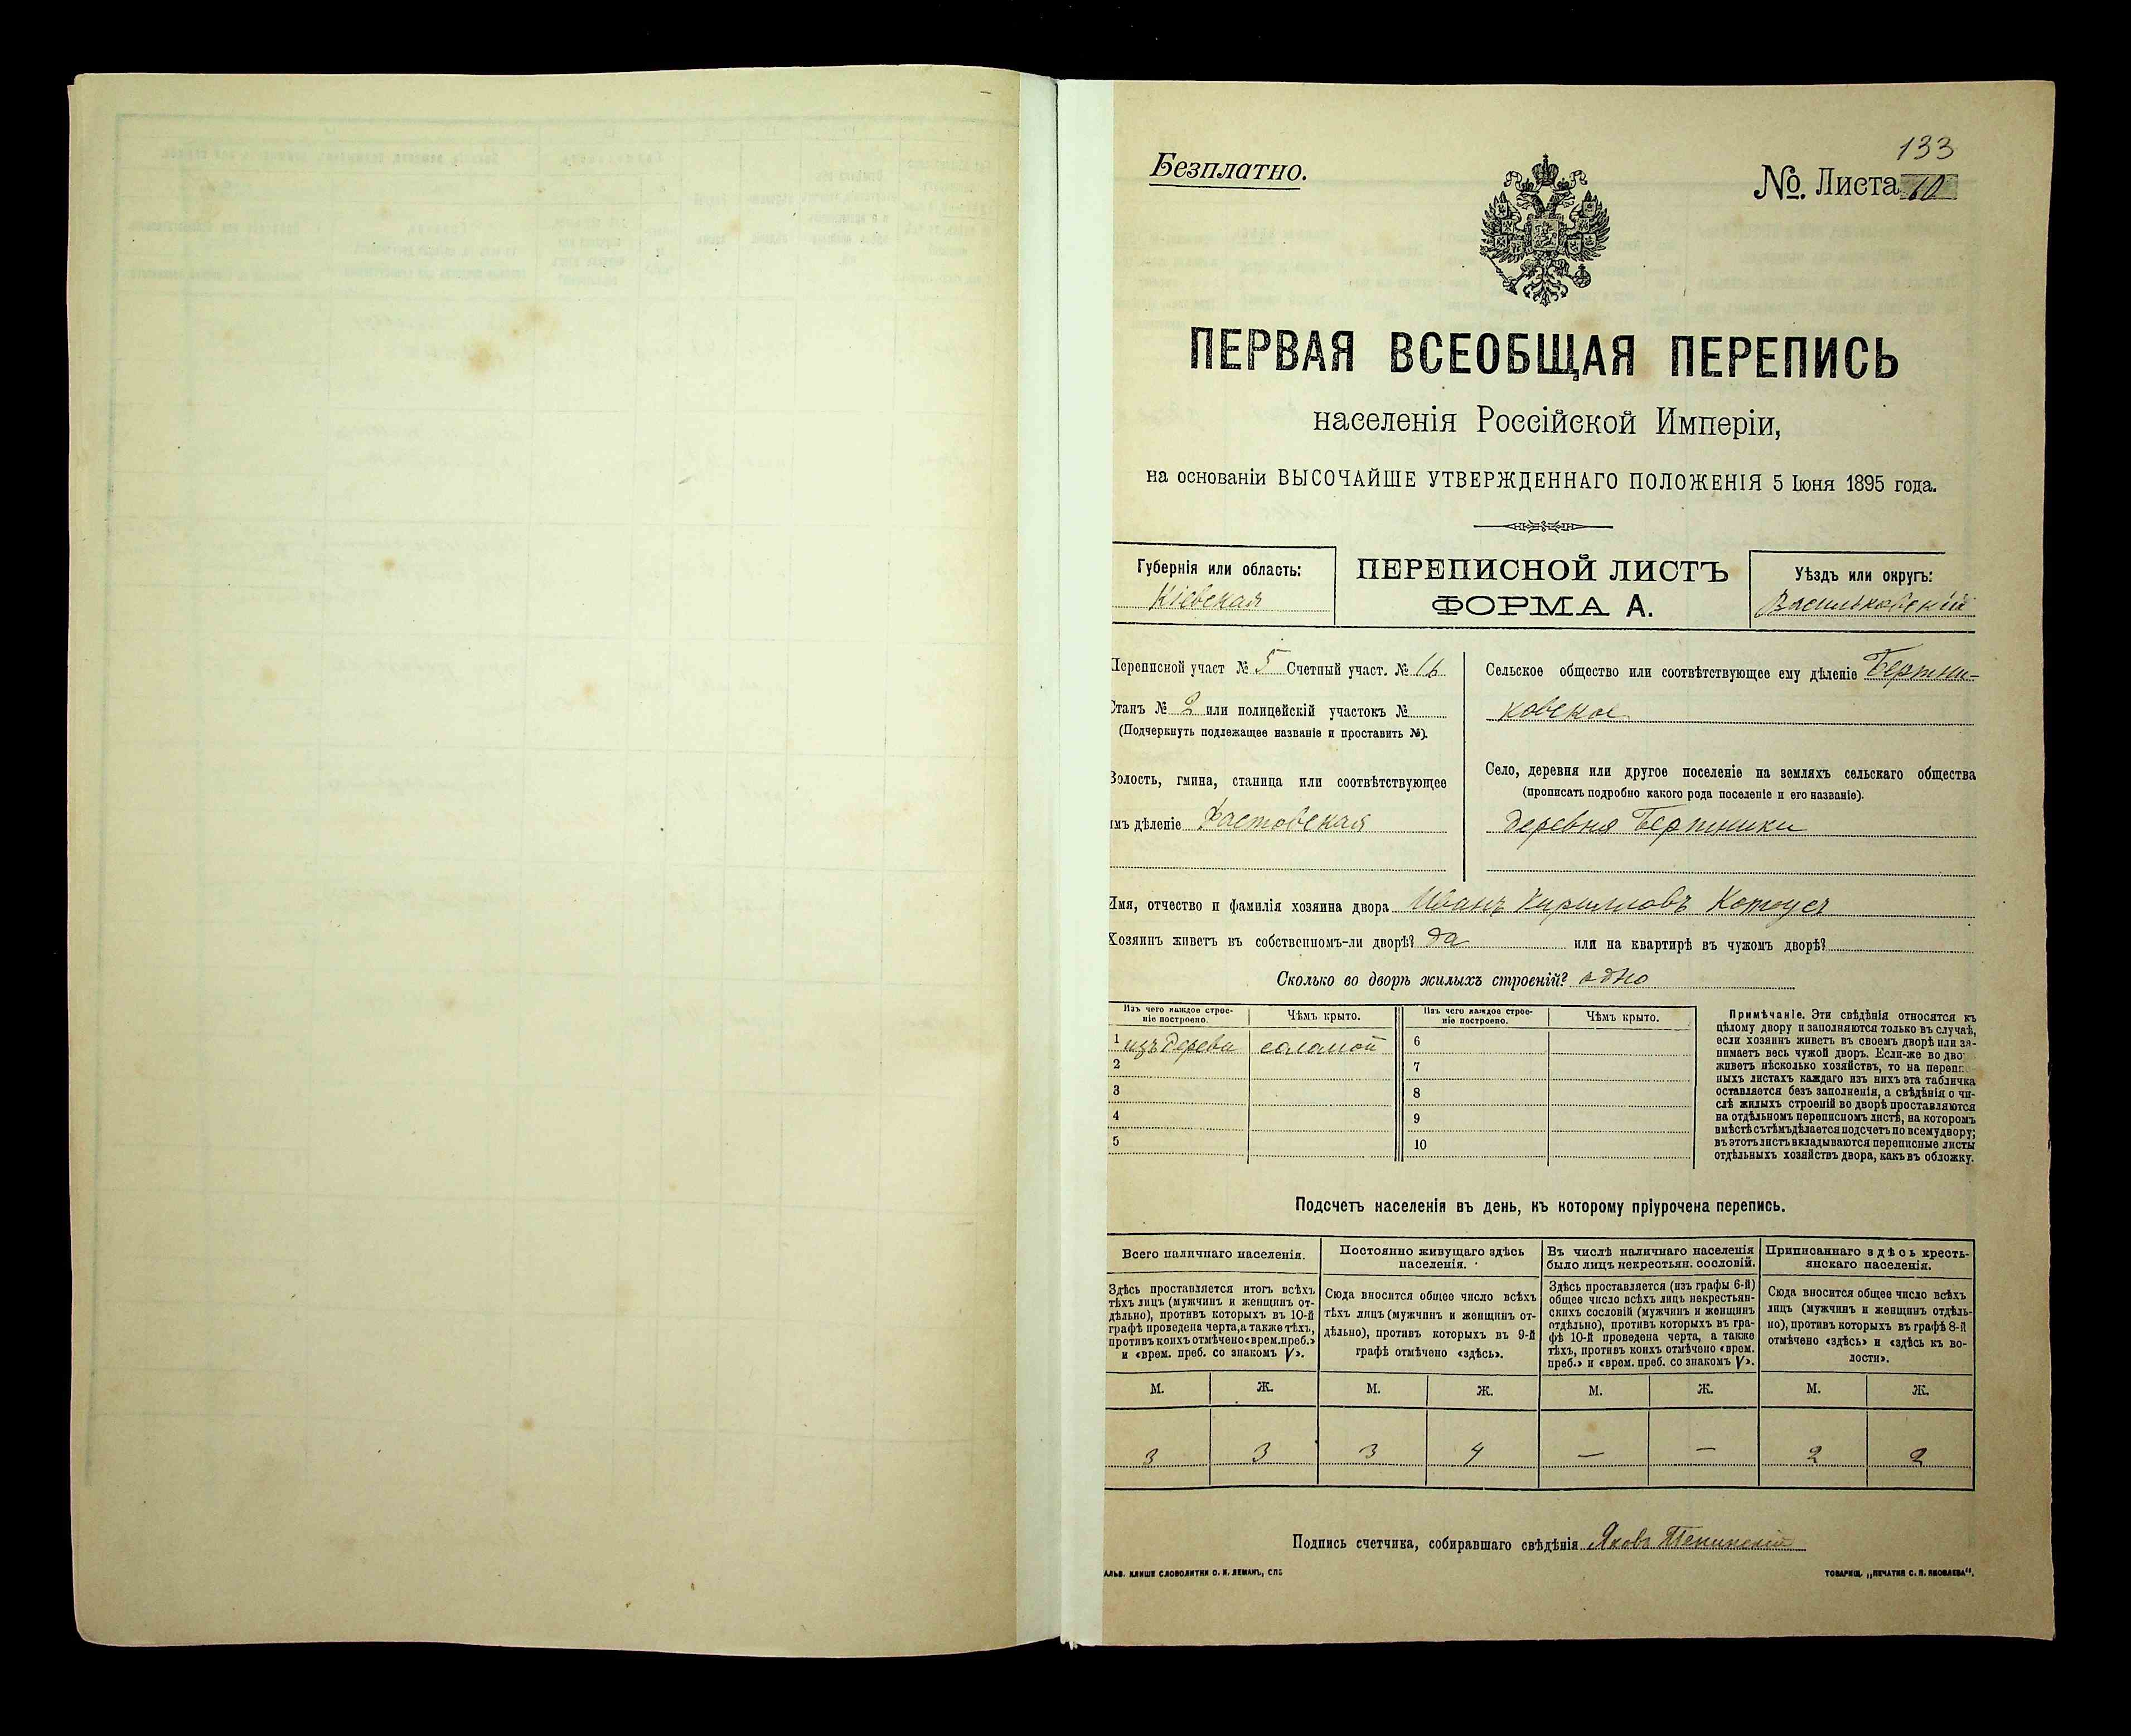 133
Безплатно.
№ Листа 60
ПЕРВАЯ ВСЕОБЩАЯ ПЕРЕПИСЬ
населенія Россійской Имперіи,
на основаніи ВЫСОЧАЙШЕ УТВЕРЖДЕННАГО ПОЛОЖЕНІЯ 5 Іюня 1895 года.
Губернія или область:
Кіевская
ПЕРЕПИСНОЙ ЛИСТЪ
ФОРМА А.
Уѣздъ или округъ:
Васильковскій
Переписной участ № 5 Счетный участ. № 16
Станъ № 2 или полицейскій участокъ №
(Подчеркнуть подлежащее названіе и проставить №).
Волость, гмина, станица или соотвѣтствующее
имъ дѣленіе Фастовская
Сельское общество или соотвѣтствующее ему дѣленіе Бертни-
ковское
Село, деревня или другое поселеніе на земляхъ сельскаго общества
(прописать подробно какого рода поселеніе и его названіе).
деревня Бертники
Имя, отчество и фамилія хозяина двора Иванъ Кирилловъ
Хозяинъ живетъ въ собственномъ-ли дворѣ? да или на квартирѣ въ чужомъ дворѣ?
Сколько во дворѣ жилыхъ строеній? одно
Изъ чего каждое строе-
ніе построено.
Чѣмъ крыто.
Изъ чего каждое строе-
ніе построено.
Чѣмъ крыто.
1 изъ дерева соломой 6
2 7
3 8
4 9
5 10
Примѣчаніе. Эти свѣдѣнія относятся къ
цѣлому двору и заполняются только въ случаѣ,
если хозяинъ живетъ въ своемъ дворѣ или за-
нимаетъ весь чужой дворъ. Если-же во дво
живетъ нѣсколько хозяйствъ, то на переп
ныхъ листахъ каждаго изъ нихъ эта табличка
оставляется безъ заполненія, а свѣдѣнія о чи-
слѣ жилыхъ строеній во дворѣ проставляются
на отдѣльномъ переписномъ листѣ, на которомъ
вмѣстѣ съ тѣмъ дѣлается подсчетъ по всему двору;
въ этотъ листъ вкладываются переписные листы
отдѣльныхъ хозяйствъ двора, какъ въ обложку.
Подсчетъ населенія въ день, къ которому пріурочена перепись.
Всего наличнаго населенія.
Здѣсь проставляется итогъ всѣхъ
тѣхъ лицъ (мужчинъ и женщинъ от-
дѣльно), противъ которыхъ въ 10-й
графѣ проведена черта, а также тѣхъ,
противъ коихъ отмѣчено «врем. преб.»
и «врем. преб. со знакомъ V».
Постоянно живущаго здѣсь
населенія.
Сюда вносится общее число всѣхъ
тѣхъ лицъ (мужчинъ и женщинъ от-
дѣльно), противъ которыхъ въ 9-й
графѣ отмѣчено «здѣсь».
Въ числѣ наличнаго населенія
было лицъ некрестьян. сословій.
Здѣсь проставляется (изъ графы 6-й)
общее число всѣхъ лицъ некрестьян-
скихъ сословій (мужчинъ и женщинъ
отдѣльно), противъ которыхъ въ гра-
фѣ 10-й проведена черта, а также
тѣхъ, противъ коихъ отмѣчено «врем.
преб.» и «врем. преб. со знакомъ V».
Приписаннаго здѣсь кресть-
янскаго населенія.
Сюда вносится общее число всѣхъ
лицъ (мужчинъ и женщинъ отдѣль-
но), противъ которыхъ въ графѣ 8-й
отмѣчено «здѣсь» и «здѣсь къ во-
лости».
М. Ж. М. Ж. М. Ж. М. Ж.
3 3 3 4 — — 2 2
Подпись счетчика, собиравшаго свѣдѣнія Яковъ
АЛЬВ. КЛИШЕ СЛОВОЛИТНИ О. И. ЛЕМАНЪ, СПБ
ТОВАРИЩ. „ПЕЧАТНЯ С. П. ЯКОВЛЕВА“.